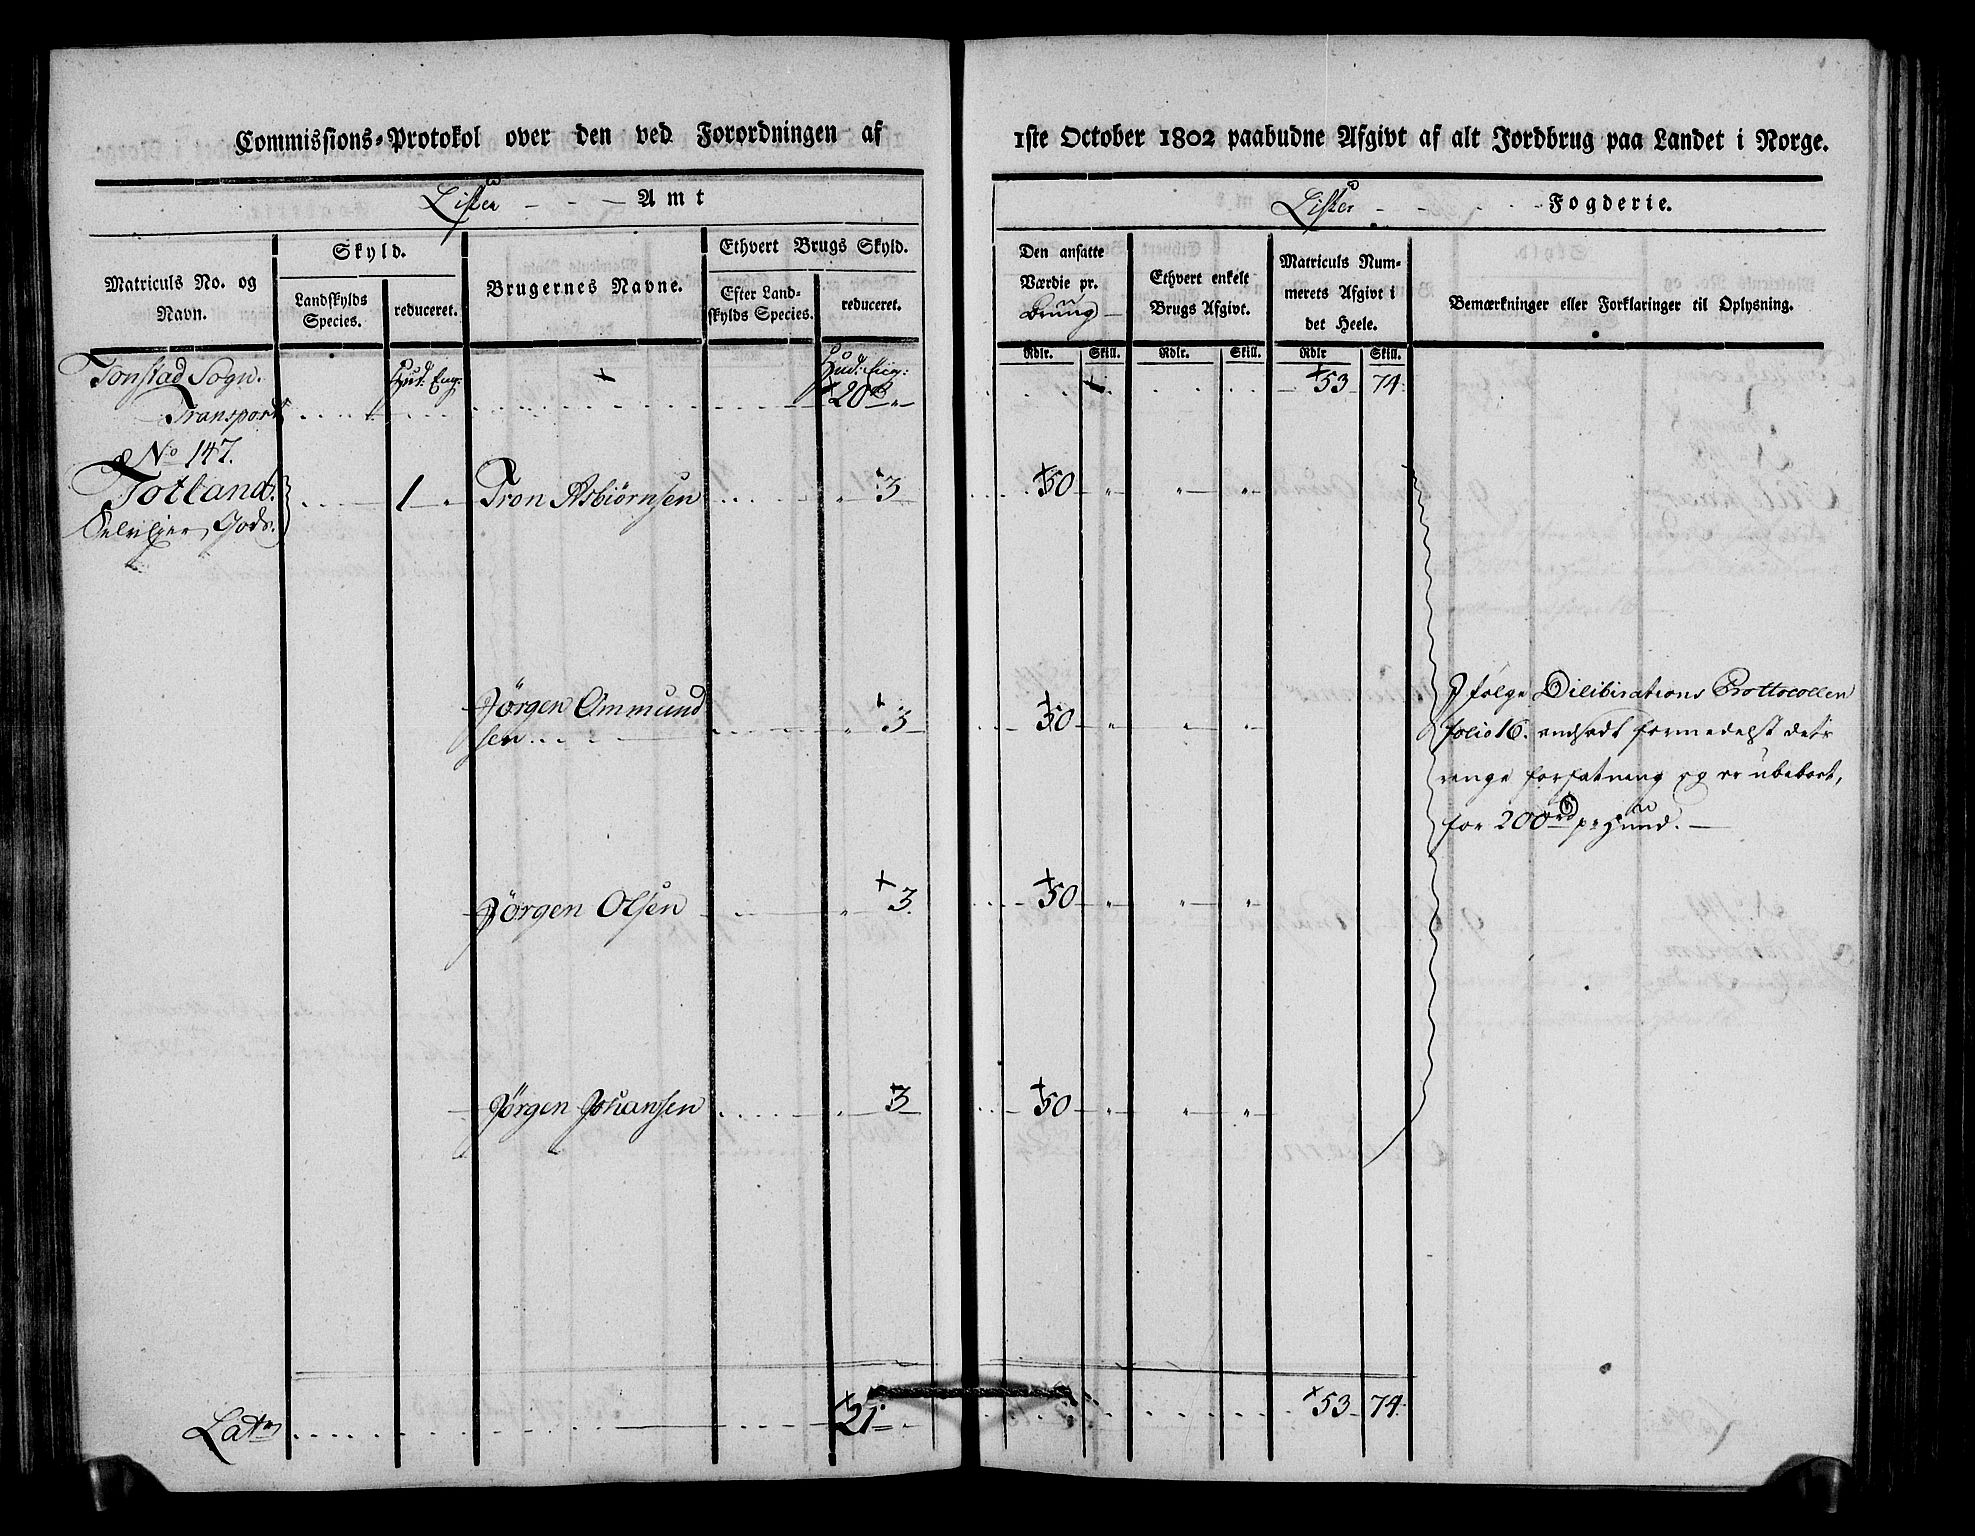 Commissions-Protokol over den ved Forordningen af 1ste October 1802 paabudne Afgivt af alt Jordbrug paa Landet i Norge.
Lister - - - Amt
Lister - - - - Fogderie.
Matriculs No. og Navn.
Skyld.
Landskylds Species.
reduceret.
Brugernes Navne.
Ethvert Brugs Skyld.
Efter Landskylds Species.
reduceret.
Den ansatte Værdie pr. Brug
Ethvert enkelt Brugs Afgivt.
Matriculs Nummerets Afgivt i det Heele.
Bemærkninger eller Forklaringer til Oplysning.
Rdlr. Skill. Rdlr. Skill. Rdlr Skill.
Tonstad Sogn. Hud: Eng: Hud: Eng:
Transport 20 " 53 74
No 147.
Totland. 1 " Tron Asbiörnsen " 3 50 " " "
Selveÿer Gods.
Jörgen Ommund
sen " 3 50 " " "
Jfölge Dilibirations Prottocollen
folio 16. ansadt formedelst det's
ringe forfatning og er ubeboet,
for 200 rd pr Huud.
Jörgen Olsen " 3. 50 " " "
Jörgen Johansen " 3 50 " " "
Lats 21 53 74